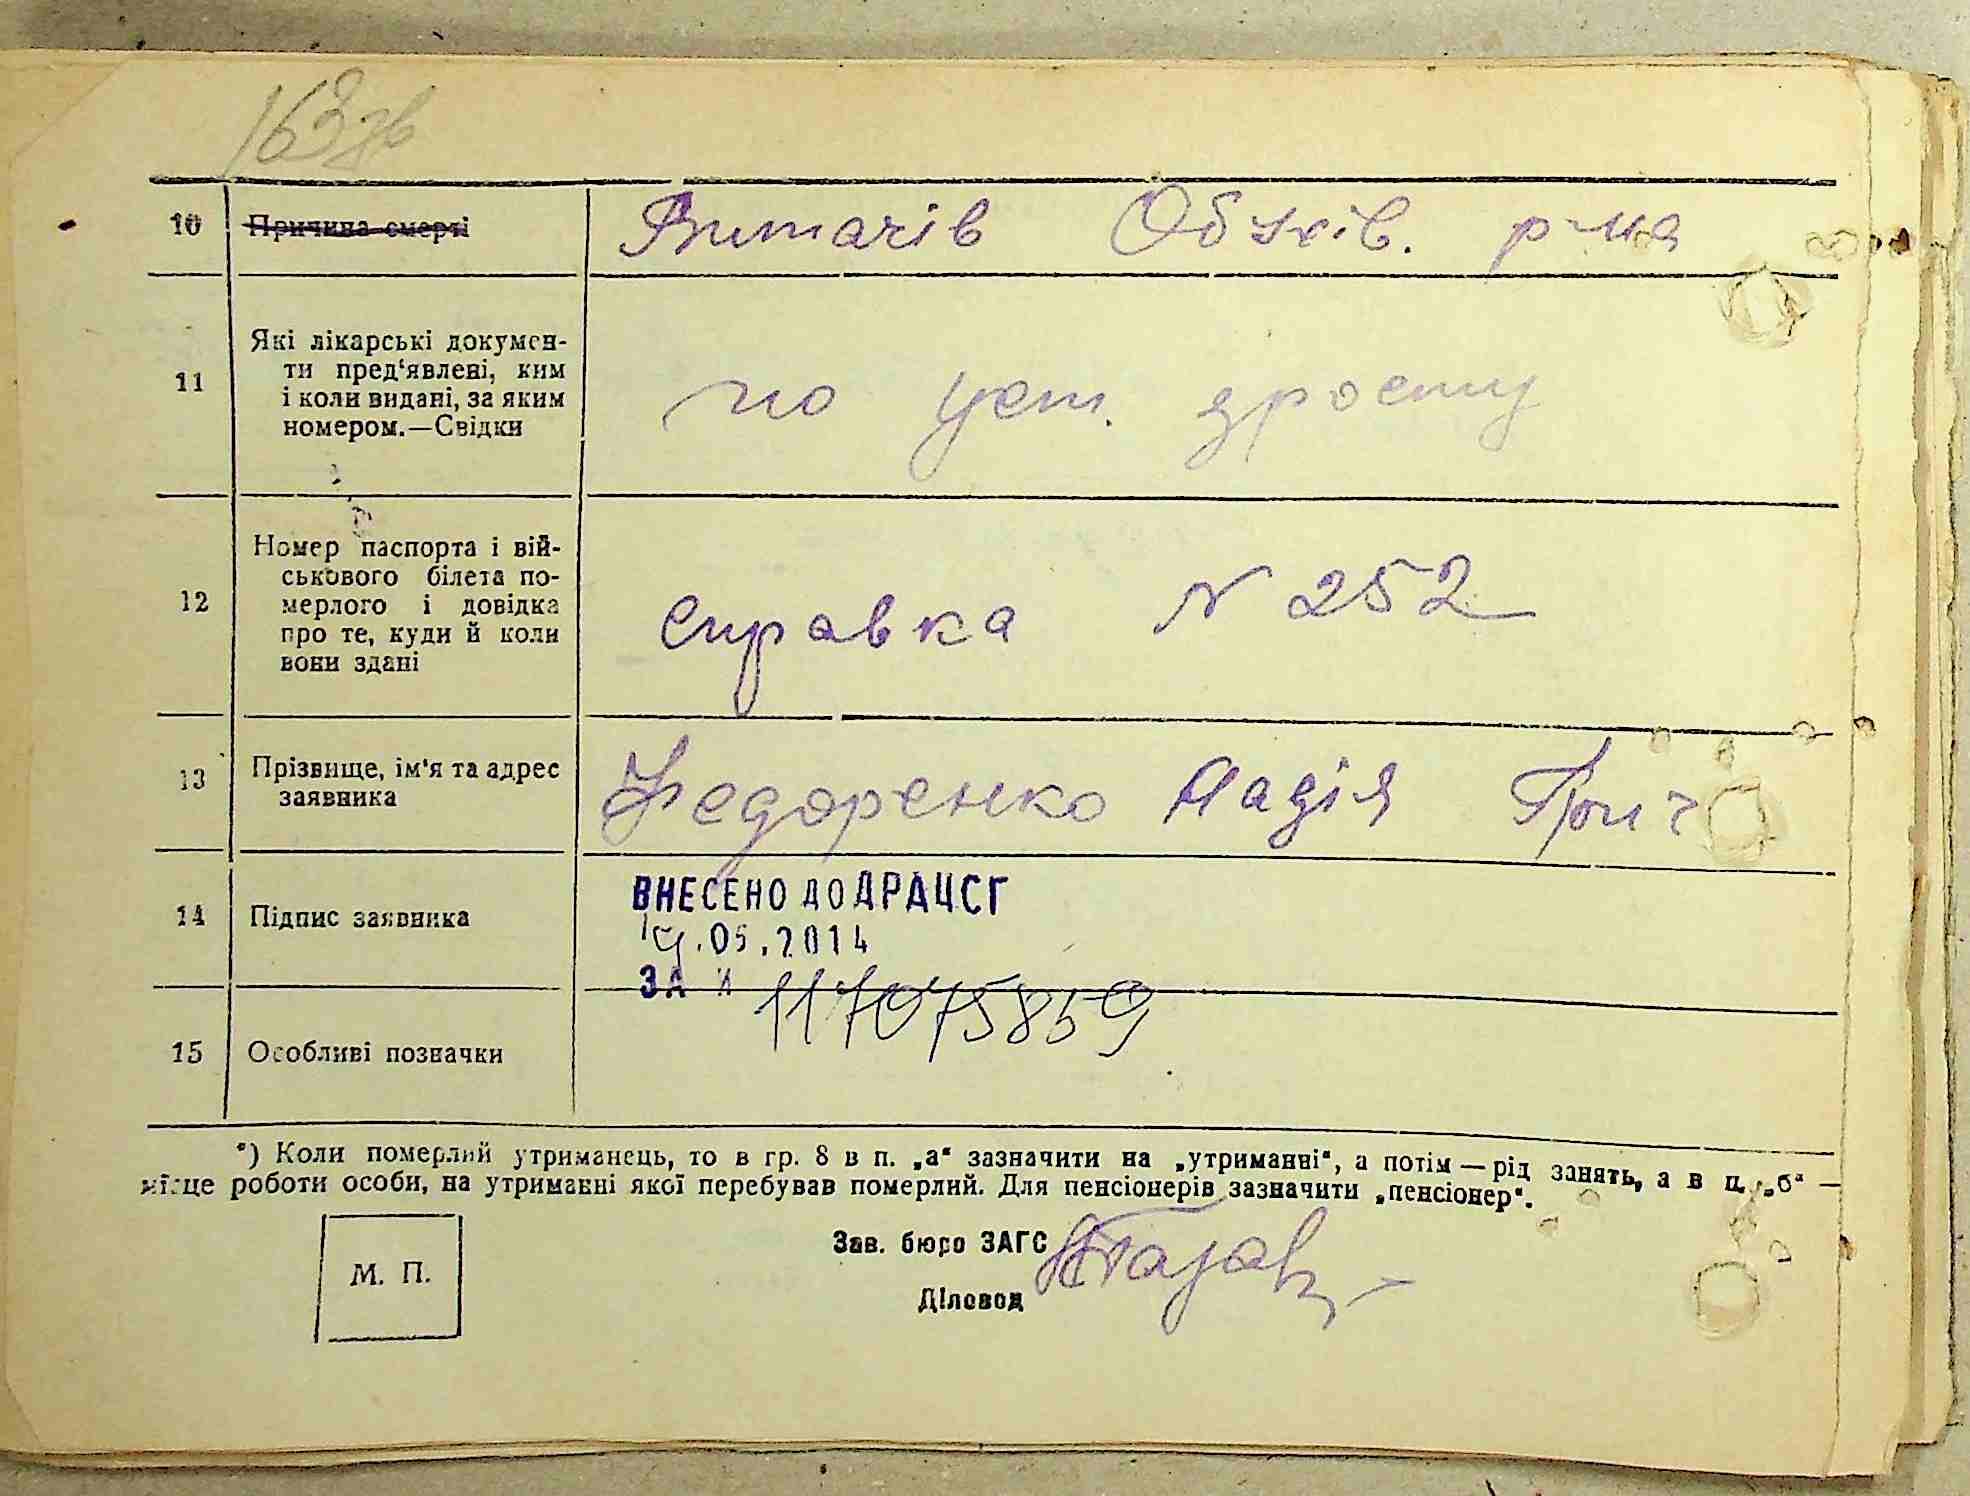 163 зв
10 Причина смерті Витачів Обухів. р-на
11 Які лікарські докумен-
ти пред‘явлені, ким
і коли видані, за яким
номером.—Свідки
по уст.
12 Номер паспорта і вій-
ськового білета по-
мерлого і довідка
про те, куди й коли
вони здані
справка N 252
13 Прізвище, ім'я та адрес
заявника
Федоренко Надія Григ
ВНЕСЕНО ДО ДРАЦСГ
14 Підпис заявника
.05.2014
ЗА N 117075859
15 Особливі позначки
*) Коли померлий утриманець, то в гр. 8 в п. „а“ зазначити на „утриманні“, а потім — рід занять, а в п. „б“ —
місце роботи особи, на утриманні якої перебував померлий. Для пенсіонерів зазначити „пенсіонер“.
Зав. бюро ЗАГС
М. П.
Діловод